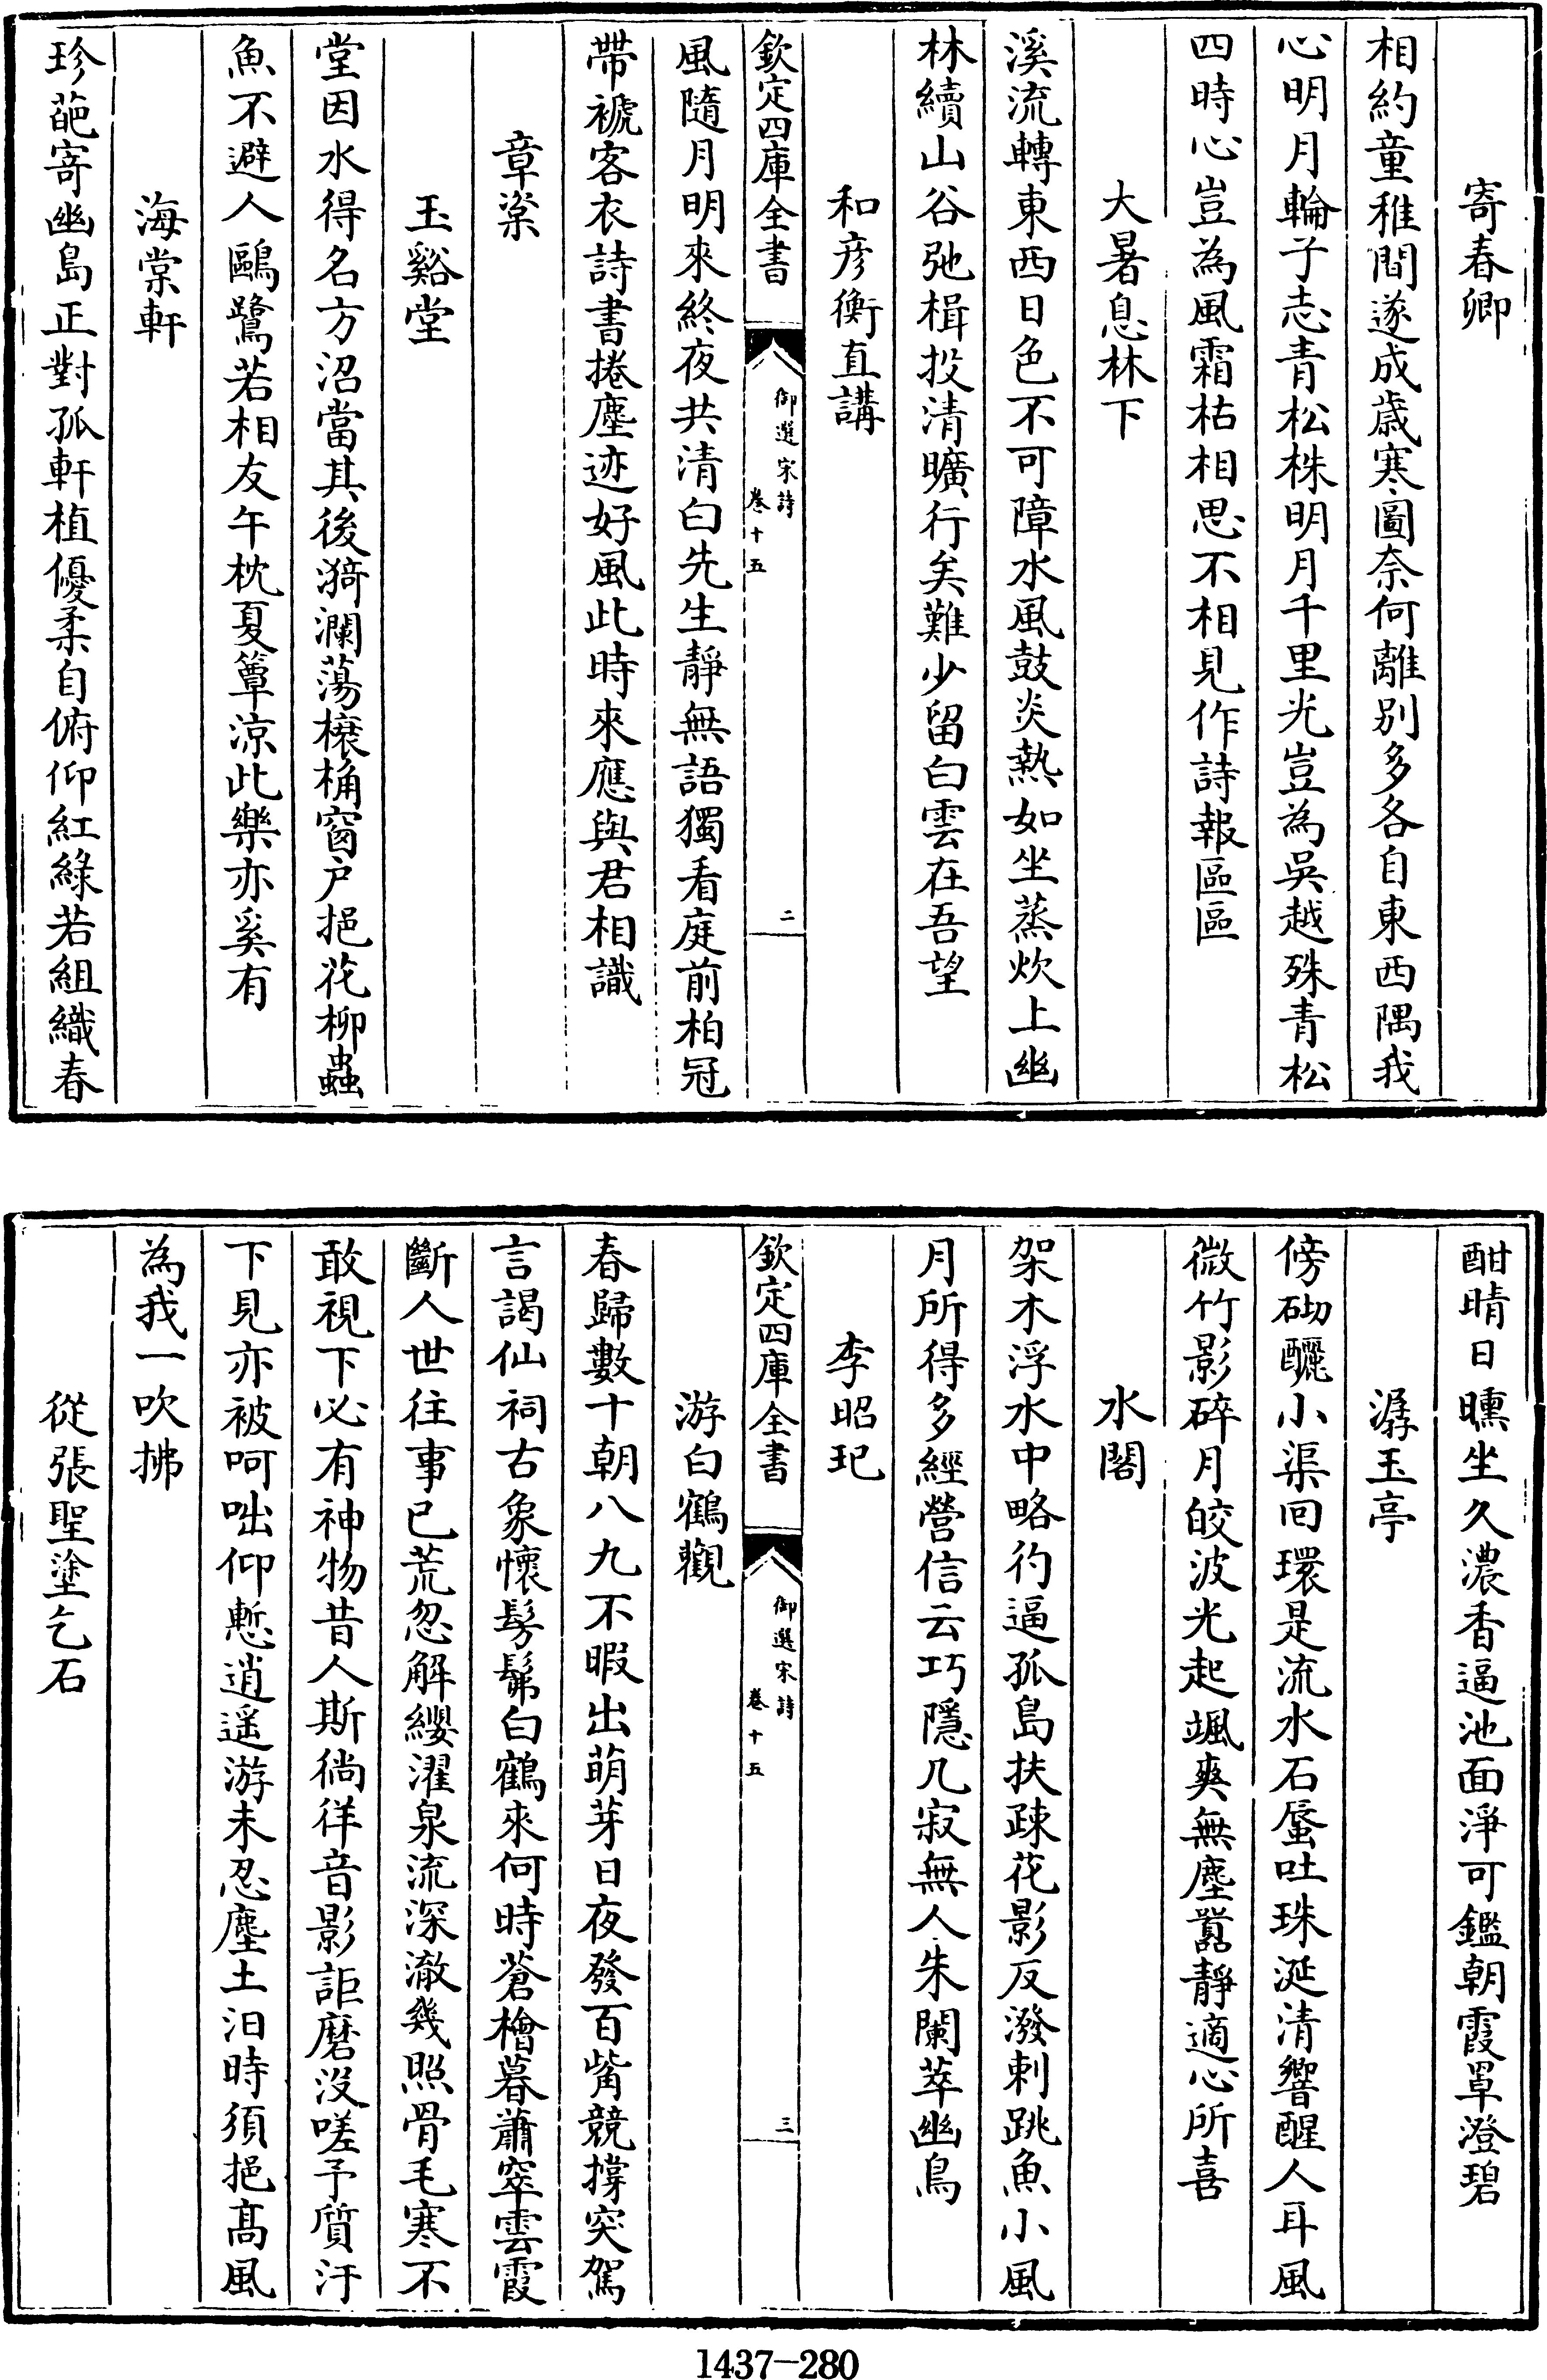 寄春卿
相約童稚間遂成歲寒圖奈何離别多各自東西隅我
心明月輪子志青松株明月千里光豈為吳越殊青松
四時心豈為風霜枯相思不相見作詩報區區
大暑息林下
溪流轉東西日色不可障水風鼓炎熱如坐蒸炊上幽
林續山谷弛楫投清曠行矣難少留白雲在吾望
和彦衡直講
欽定四庫全書
御選宋詩
卷十五
二
風隨月明來終夜共清白先生靜無語獨看庭前柏冠
帶褫客衣詩書捲塵迹好風此時來應與君相識
章楶
玉谿堂
堂因水得名方沼當其後漪瀾蕩榱桷窗户挹花柳蟲
魚不避人鷗鷺若相友午枕夏簟涼此樂亦奚有
海棠軒
珍葩寄幽島正對孤軒植優柔自俯仰紅綠若組織春
酣晴日曛坐久濃香逼池面淨可鑑朝霞罩澄碧
潺玉亭
傍砌釃小渠回環是流水石蜃吐珠涎清響醒人耳風
微竹影碎月皎波光起颯爽無塵囂靜適心所喜
水閣
架木浮水中略彴逼孤島扶疎花影反潑剌跳魚小風
月所得多經營信云巧隱几寂無人朱闌萃幽鳥
李昭玘
欽定四庫全書
御選宋詩
卷十五
三
游白鶴觀
春歸數十朝八九不暇出萌芽日夜發百觜競撐突駕
言謁仙祠古象懷髣髴白鶴來何時蒼檜暮蕭窣雲霞
斷人世往事已荒忽解纓濯泉流深澈幾照骨毛寒不
敢視下必有神物昔人斯徜徉音影詎磨沒嗟予質汙
下見亦被呵咄仰慙逍遥游未忍塵土汩時須挹髙風
為我一吹拂
從張聖塗乞石
1437—280